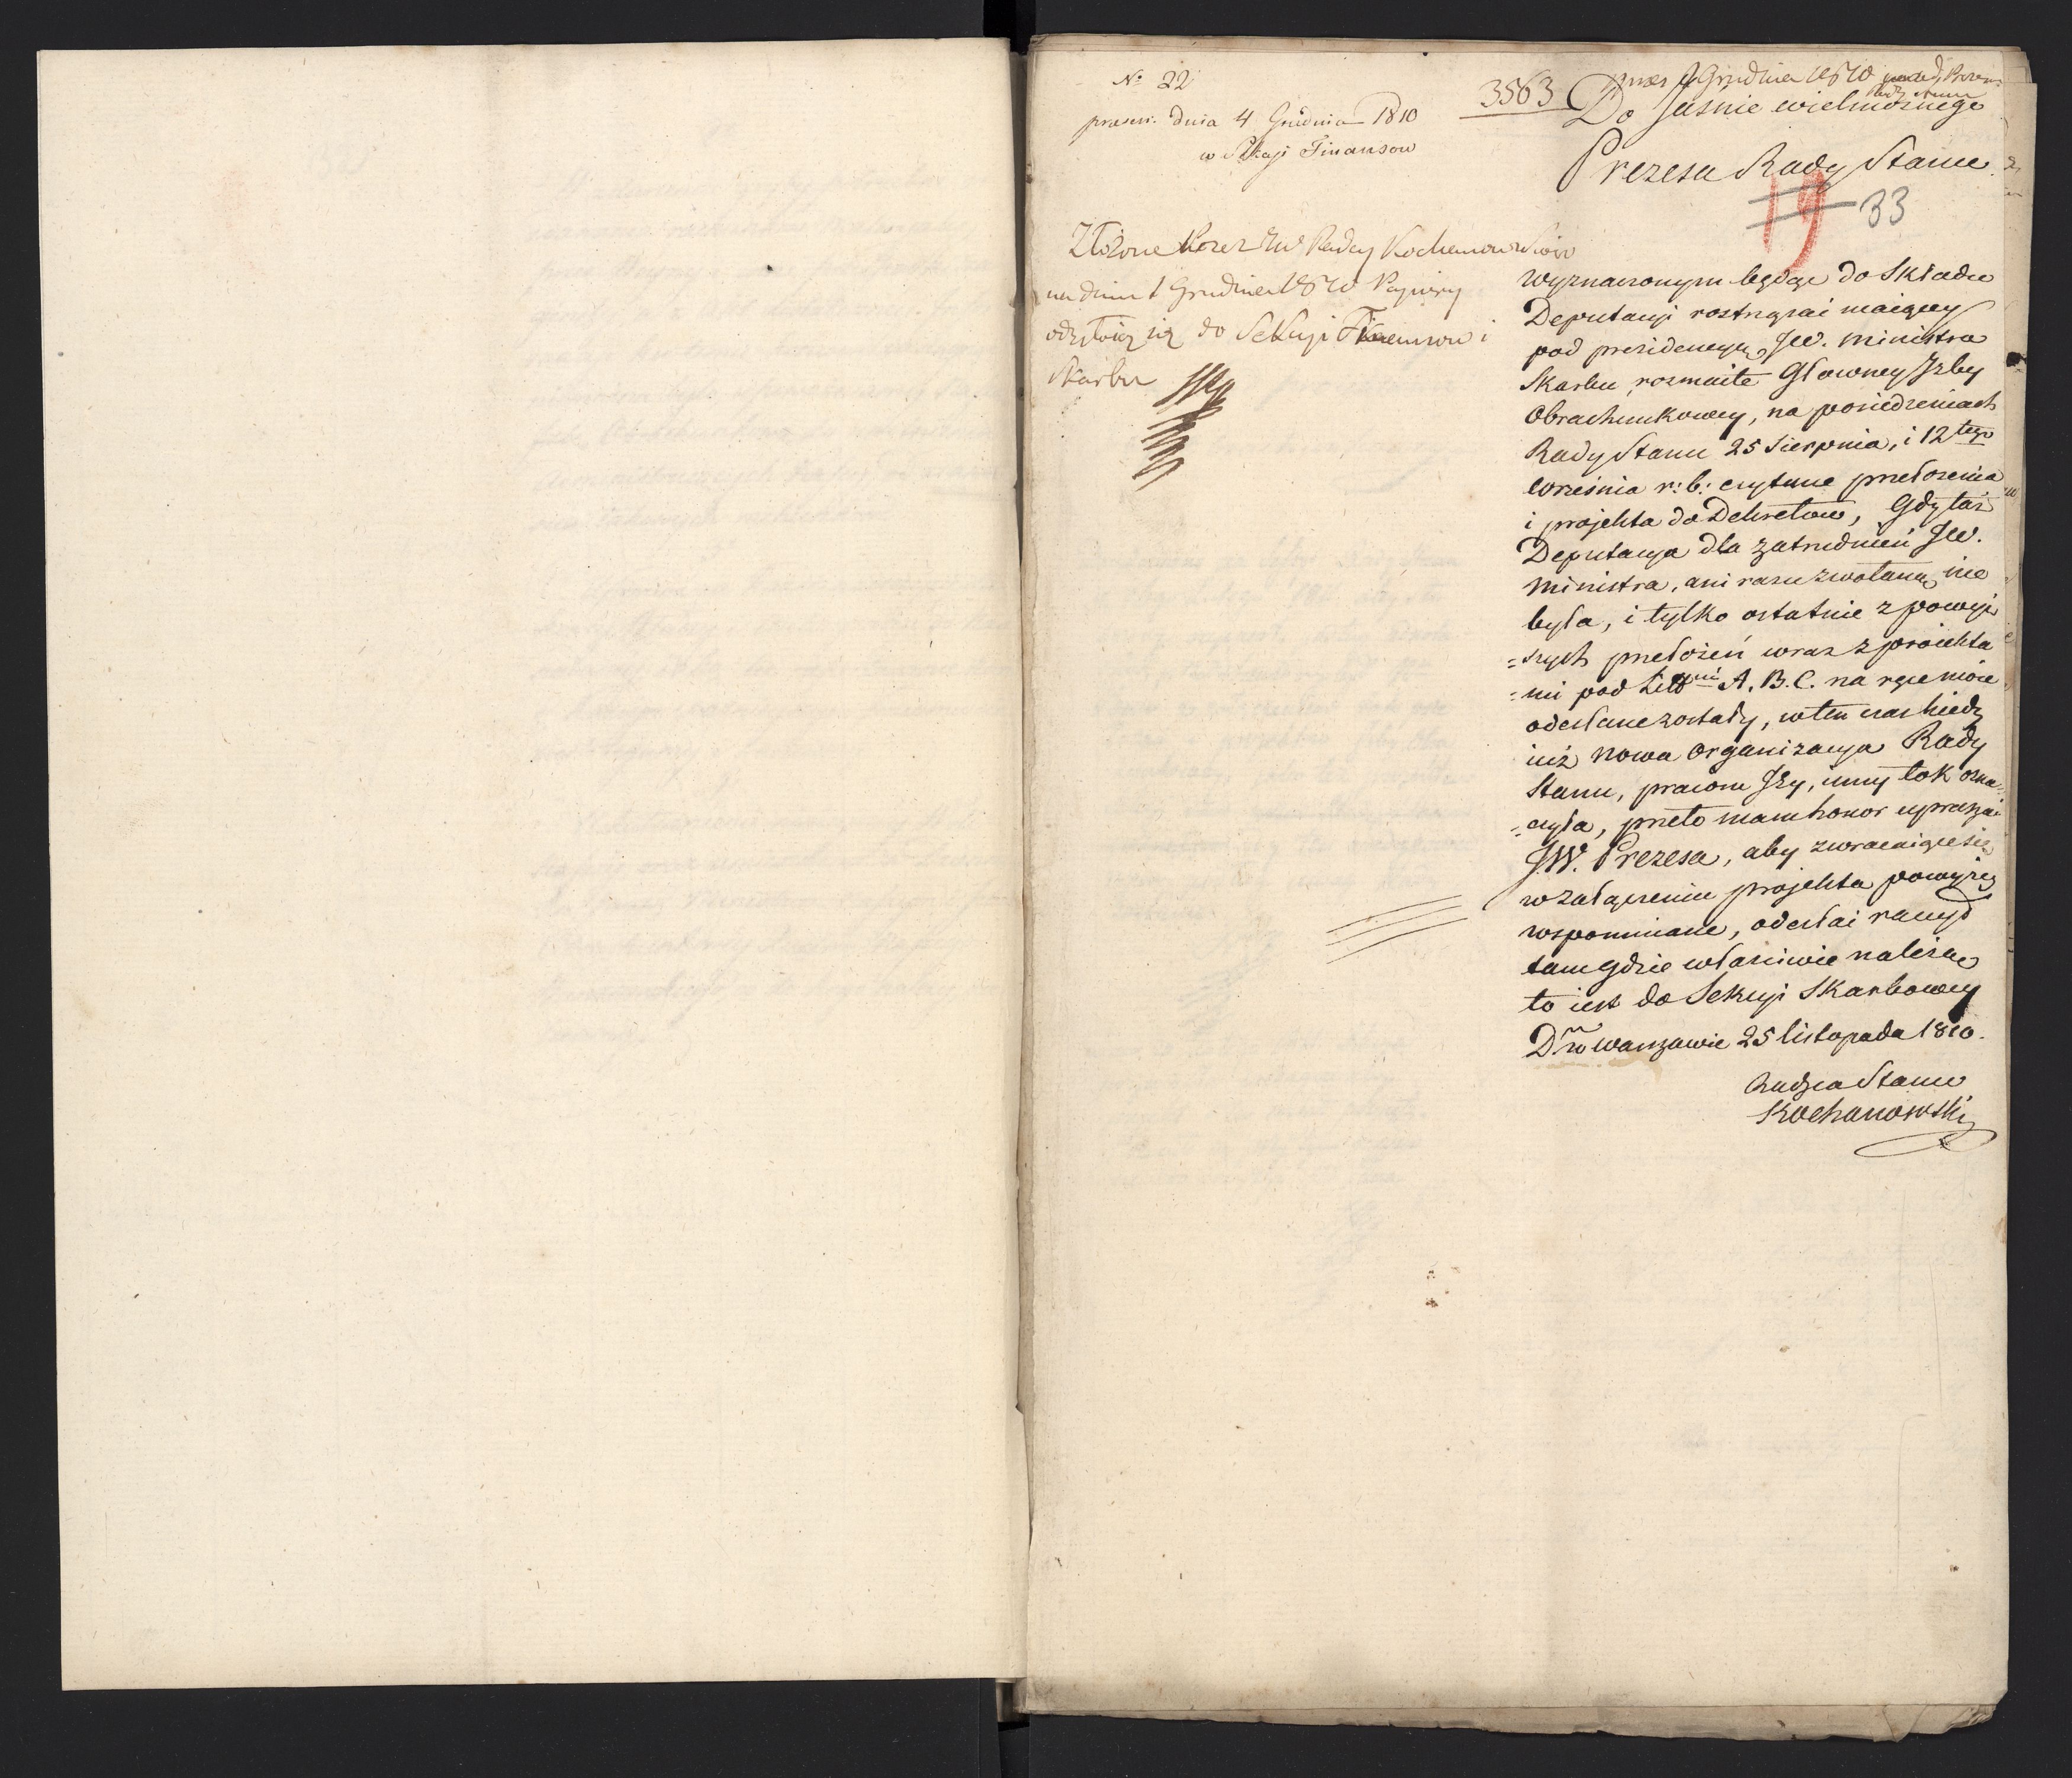 No 22
praesen. dnia 4 Grudnia 1810
w Sekcyi Finansow
3563
Praes 1 Grudnia 1810
Do Jaśnie wielmożnego
Prezesa Rady Stanu
19 33
Złożone przez JW Radcy Kochanowskiego
na dniu 1 Grudnia 1810 Papiery
odsyłaią się do Sekcyi Finansow i
Skarbu
Wyznaczonym będąc do Składu
Deputacyi rostrząsać maiącey
pod prezidencyą JW. Ministra
Skarbu, rozmaite Głowney Jzby
Obrachunkowey, na posiedzeniach
Rady Stanu 25 Sierpnia, i 12tego
Września r: b: czytane przełożenia
i projekta do Dekretow, Gdy taż
Deputacya dla zatrudnień JW.
Ministra, ani razu zwołaną nie
była, i tylko ostatnie z powyż
=szych przełożeń wraz z proiekta
=mi pod Litt A. B. C. na ręce moie
odesłane zostały, w ten czas kiedy
iuż nowa Organizacya Rady
Stanu, pracom Jey, inny tok ozna
=czyła, przeto mam honor upraszać
JW. Prezesa, aby zwracaiące się
w załączeniu projekta powyżey
wspomniane, odesłać raczył
tam gdzie właściwie należą
to iest do Sekcyi Skarbowey
D w Warszawie 25 listopada 1810.
Radzca Stanu
Kochanowski